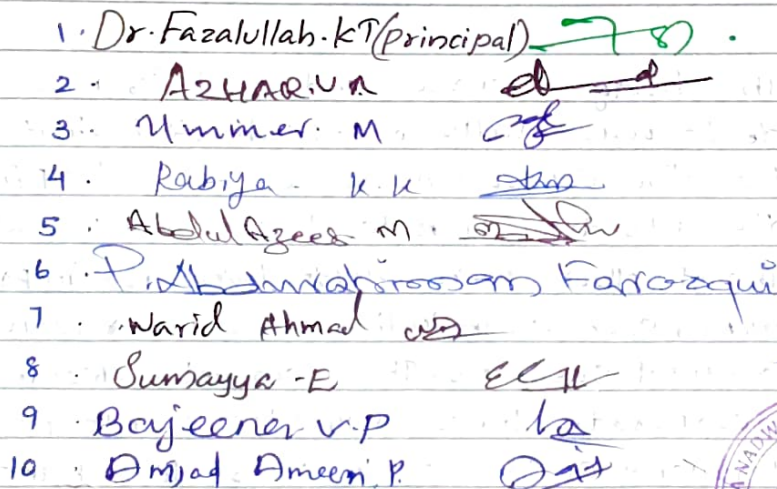 1. Dr. Fazalullah. KT (principal)
2. AZHAR. V.R
3. Ummer. M
4. Rabiya. K.K
5. Abdul Azees M.
6. P. Abdurahiman Farooqui
7. Warid Ahmad
8. Sumayya - E
9. Bajeena V.P
10. Amjad Ameen. P.
NADW